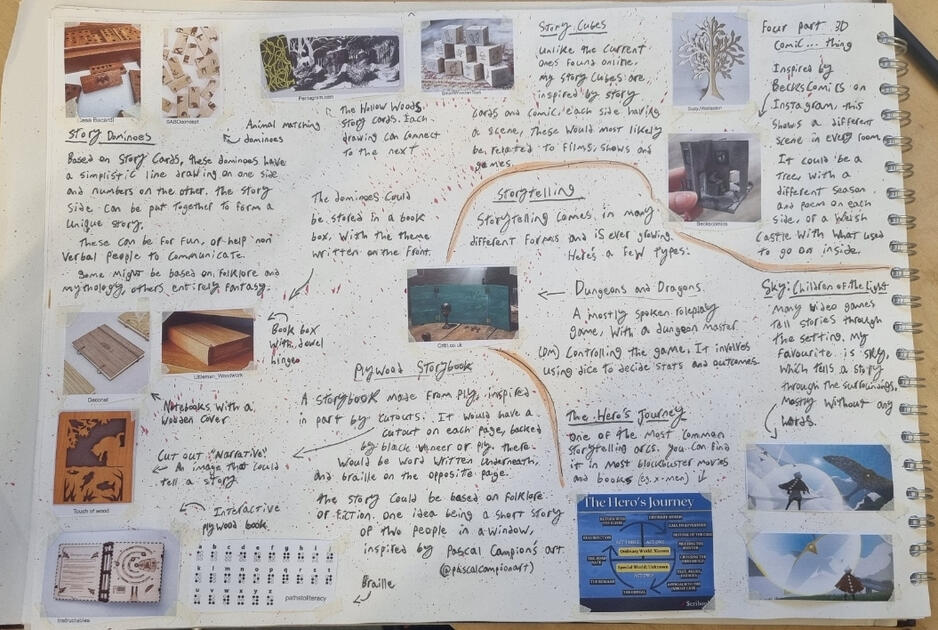 Casa Bacardi
SABDconcept
Story Dominoes
Based on Story Cards, these dominoes have
a simplistic line drawing on one side
and numbers on the other. the story
side can be put together to form a
unique story.
These can be for fun, or help non
verbal people to communicate.
Some might be based on folklore and
mythology, others entirely fantasy.
Animal matching
dominoes
The Hollow Woods,
story cards. Each
drawing can connect
to the next
Story Cubes
Unlike the current
ones found online,
my story Cubes are
inspired by story
cards and comic, each side having
a scene, these would most likely
be related to films, shows and
games.
Four part 3D
Comic... thing
Inspired by
Beckscomics on
Instagram, this
shows a different
scene in every room
It could be a
Tree, with a
different season
and poem on each
side, or a Welsh
Castle with what used
to go on inside.
Beckscomics
The dominoes could
be stored in a book
box, with the theme
written on the front.
Storytelling
Storytelling comes in many
different formas and is ever growing.
Here's a few types:
Dungeons and Dragons
A mostly spoken roleplay
game, with a dungeon master
(DM) Controlling the game. It involves
using dice to decide stats and outcomes
Sky: Children of the Light
Many video games
tell stories through
the setting. My
favourite is Sky,
which tells a story
through the surroundings,
mostly without any
words.
Book box
with dowel
hinge
Littleman_Woodwork
Notebooks with a
wooden cover
Cut out "Narrative"
An image that could
tell a story
Touch of wood
Interactive
plywood book
Instructables
Plywood Storybook
A storybook made from ply, inspired
in part by cutouts. It would have a
cutout on each page, backed
by black veneer or ply. there
would be word written underneath,
and braille on the opposite page.
the story could be based on folklore
or fiction. One idea being a short story
of two people in a window,
inspired by Pascal Campion's art
(@pascalcampionart)
Braille
pathstoliteracy
The Hero's Journey
One of the most common
storytelling arcs. you can find
it in most blockbuster movies
and books (eg. x-men)
The Hero's Journey
Ordinary World: Known
Special World: Unknown